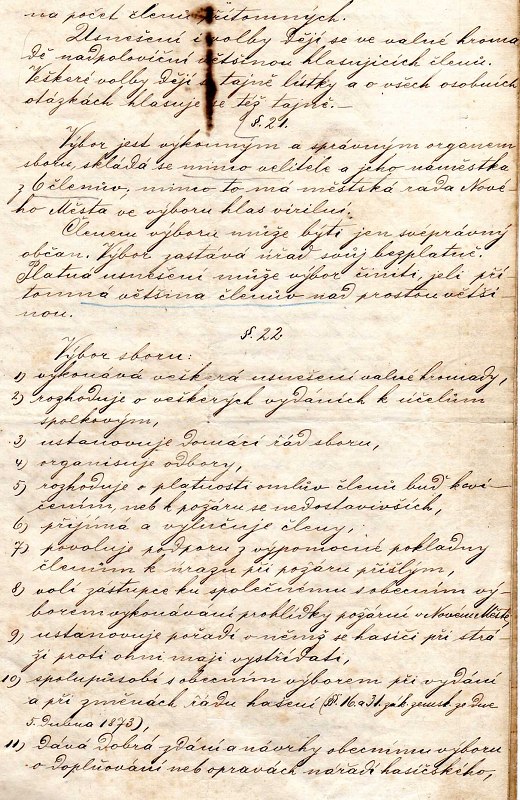 na počet členů přítomných.
Usnešení i volby dějí se ve valné hroma
dě nadpoloviční většinou hlasujících členů.
Veškeré volby dějí s tajně lístky a o všech osobních
otázkách hlasuje se též tajně.—
§. 21.
Výbor jest výkonným a správným organem
sboru, skládá se mimo velitele a jeho náměstka
z 6 členův, mimo to má městská rada Nové-
ho Města ve výboru hlas virilní.
Členem výboru může býti jen svéprávný
občan. Výbor zastává úřad svůj bezplatně.
Platná usnešení může výbor činiti, jeli pří-
tomná většina členův nad prostou větši-
nou.
§. 22
Výbor sboru:
1) vykonává veškerá usnešení valné hromady,
2) rozhoduje o veškerých vydáních k účelům
spolkovým,
3) ustanovuje domácí řád sboru,
4) organisuje odbory,
5) rozhoduje o platnosti omluv členů buď k cvi-
čením, neb k požáru se nedostavivších,
6) přijímá a vylučuje členy,
7) povoluje podporu z výpomocné pokladny
členům k úrazu při požáru přišlým,
8) volí zástupce ku společnému s obecním vý-
borem vykonávání prohlídky požární v Novém Městě
9) ustanovuje pořadí v němž se hasiči při strá-
ži proti ohni mají vystřídati,
10) spolupůsobí s obecním výborem při vydání
a při změnách řádu hašení (§§. 16. a 31. zák. zemsk. ze dne
5. Dubna 1873),
11) dává dobrá zdání a návrhy obecnímu výboru
o doplňování neb opravách nářadí hasičského,